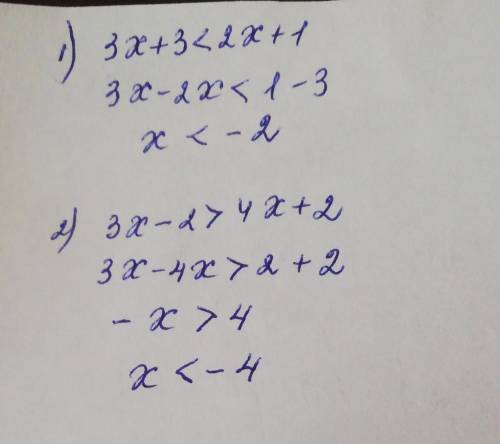 1) 3x+3<2x+1
3x-2x<1-3
x < -2
2) 3x-2>4x+2
3x-4x>2+2
-x>4
x<-4